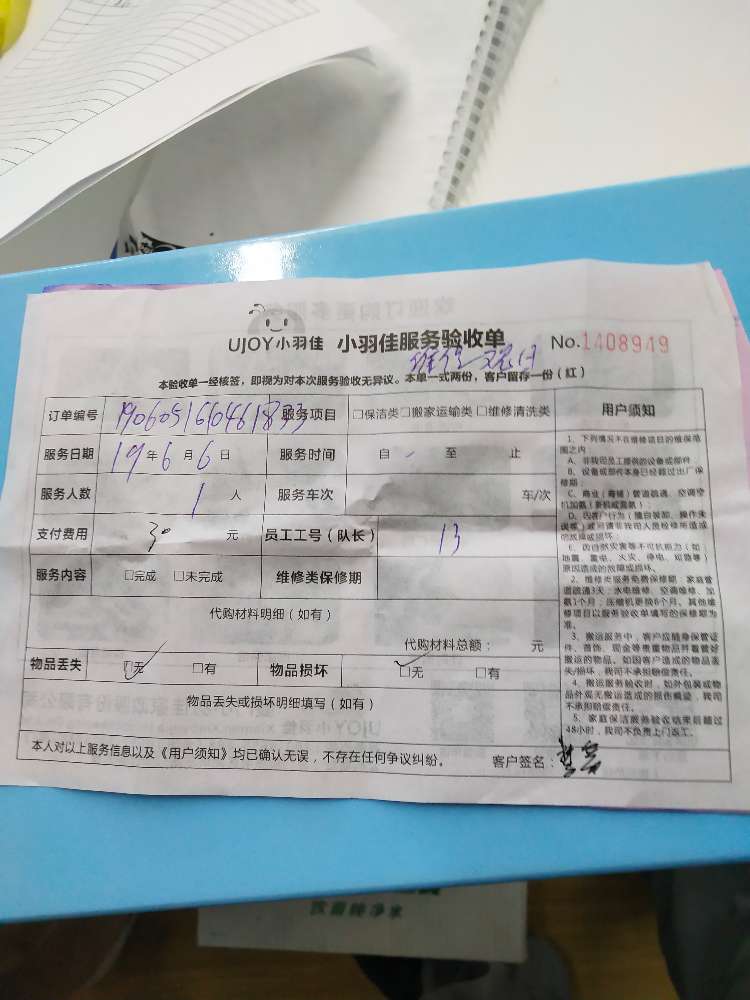 UJOY小羽佳 小羽佳服务验收单 No.1408949
本验收单一经核签，即视为对本次服务验收无异议。本单一式两份，客户留存一份（红）
订单编号 190605160461833 服务项目 □保洁类□搬家运输类□维修清洗类
服务日期 19年6月6日 服务时间 自 至 止
服务人数 1 人 服务车次 车/次
支付费用 30 元 员工工号（队长） 13
服务内容 □完成 □未完成 维修类保修期
代购材料明细（如有）
代购材料总额： 元
物品丢失 □无 □有 物品损坏 □无 □有
物品丢失或损坏明细填写（如有）
本人对以上服务信息以及《用户须知》均已确认无误，不存在任何争议纠纷。 客户签名：
用户须知
1、下列情况不在维修项目的维保范
围之内
A、非我司员工提供的设备或部件
B、设备或部件本身已经超过出厂保
修期
C、商业（商铺）管道疏通、空调空
机加氨（新机或需氨）
D、因客户行为（擅自装卸、操作失
误等）或可请非我司人员检修所造成
的故障或损坏
E、因自然灾害等不可抗能力（如
地震、雷电、火灾、停电、短路等）
原因造成的故障或损坏。
2、维修类服务免费保修期：家庭管
道疏通3天；水电维修、空调维修、加
氨1个月；压缩机更换6个月。其他维
修项目以服务验收单填写的保修期为
准。
3、搬运服务中，客户应随身保管证
件、首饰、现金等贵重物品并看管好
搬运的物品。如因客户造成的物品丢
失/损坏，我司不承担赔偿责任。
4、搬运服务验收时，如外包装或物
品外观无搬运造成的损伤痕迹，我司
不承担赔偿责任。
5、家庭保洁服务验收结束后超过
48小时，我司不负责上门返工。
饮需纯净水